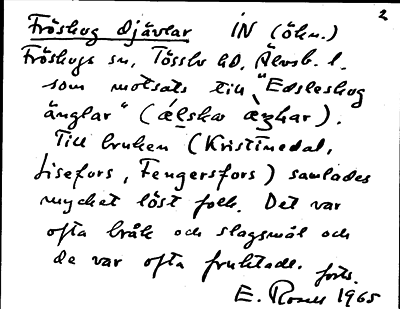 2
Fröskog djävlar IN (ökn.)
Fröskogs sn, Tössbo hd, Älvsb. l.
som motsats till "Edsleskog
änglar" (älskar ängkar).
Till bruken (Kristinedal,
Lisefors, Fengersfors) samlades
mycket löst folk. Det var
ofta bråk och slagsmål och
de var ofta fruktade. forts.
E. Rosell 1965